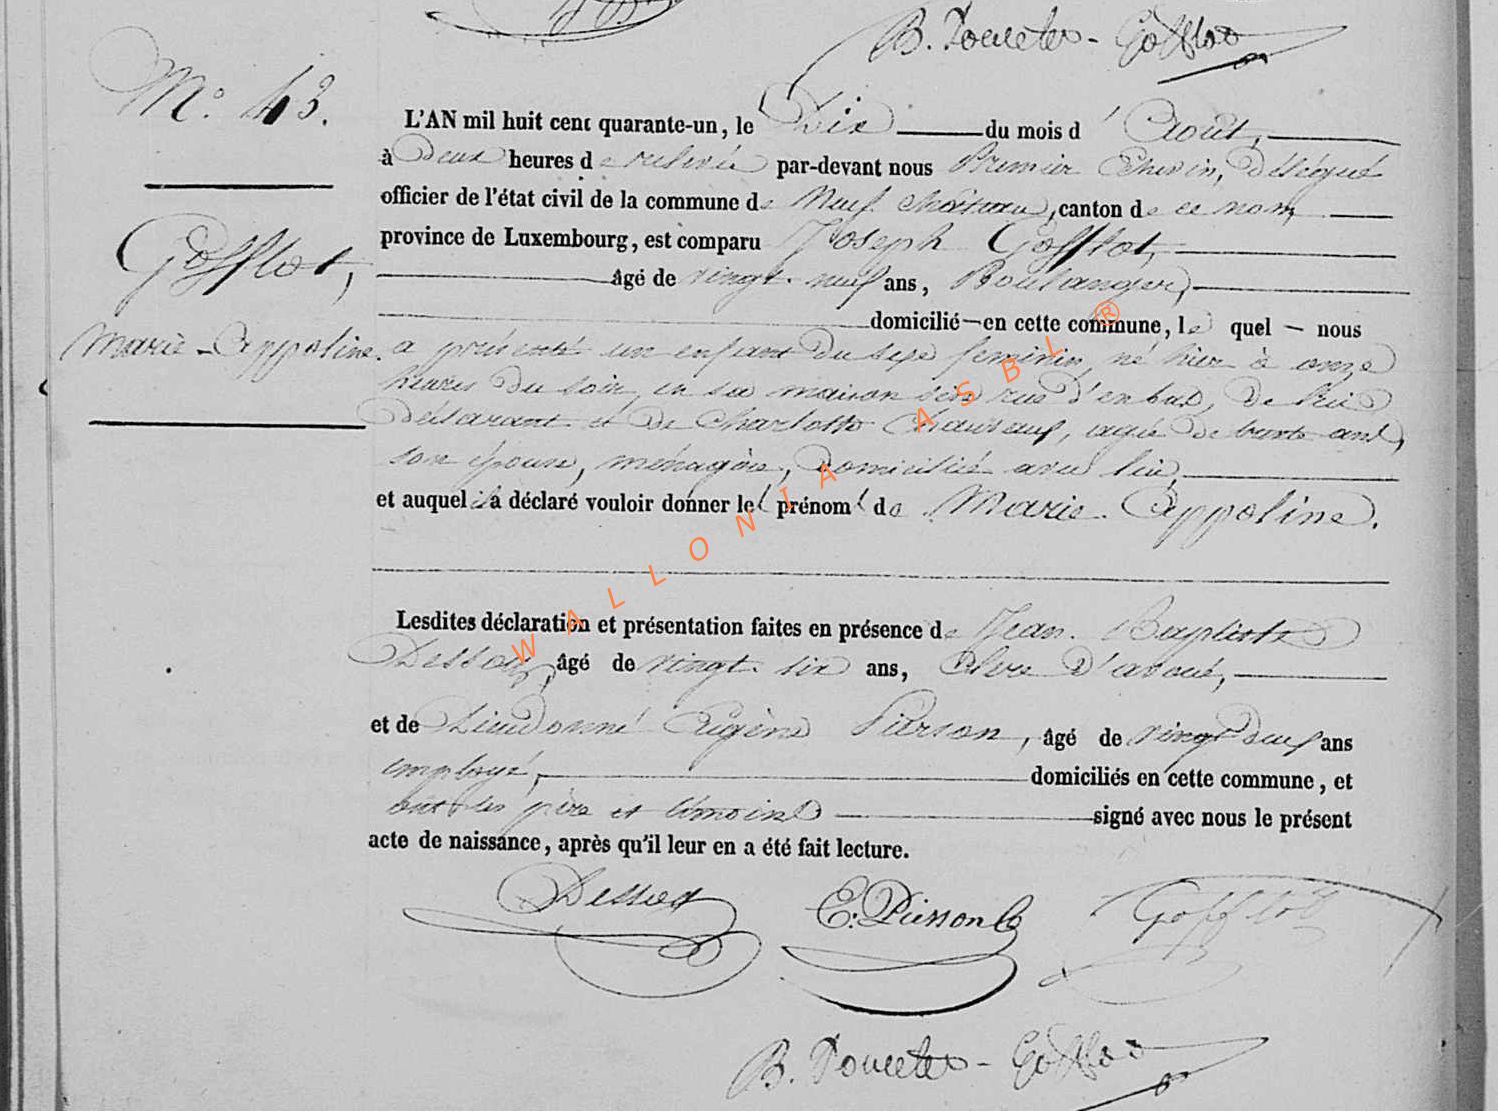 B. Poncelet - Gofflot
N.° 43.
L'AN mil huit cent quarante-un, le Dix du mois d'Août,
à Deux heures de relevée par-devant nous Premier Echevin, Délégué
officier de l'état civil de la commune de Neufchâteau, canton de ce nom,
province de Luxembourg, est comparu Joseph Gofflot,
Gofflot,
âgé de vingt-neuf ans, Boulanger,
domicilié en cette commune, le quel nous
Marie-Appoline.
a présenté un enfant du sexe feminin, né hier à onze
heures du soir, en sa maison sise rue d'en bas, de lui
déclarant et de Charlotte, agée de trente ans,
son épouse, ménagère, domiciliée avec lui,
et auquel il a déclaré vouloir donner les prénoms de Marie-Appoline.
Lesdites déclaration et présentation faites en présence de Jean-Baptiste
Dessoy, âgé de vingt-six ans, Clerc d'avoué,
et de Dieudonné Eugène Pierson, âgé de vingt-deux ans
employé, domiciliés en cette commune, et
ont les père et témoins signé avec nous le présent
acte de naissance, après qu'il leur en a été fait lecture.
Dessoy E. Pierson Gofflot
B. Poncelet - Gofflot
WALLONIA ASBL ®